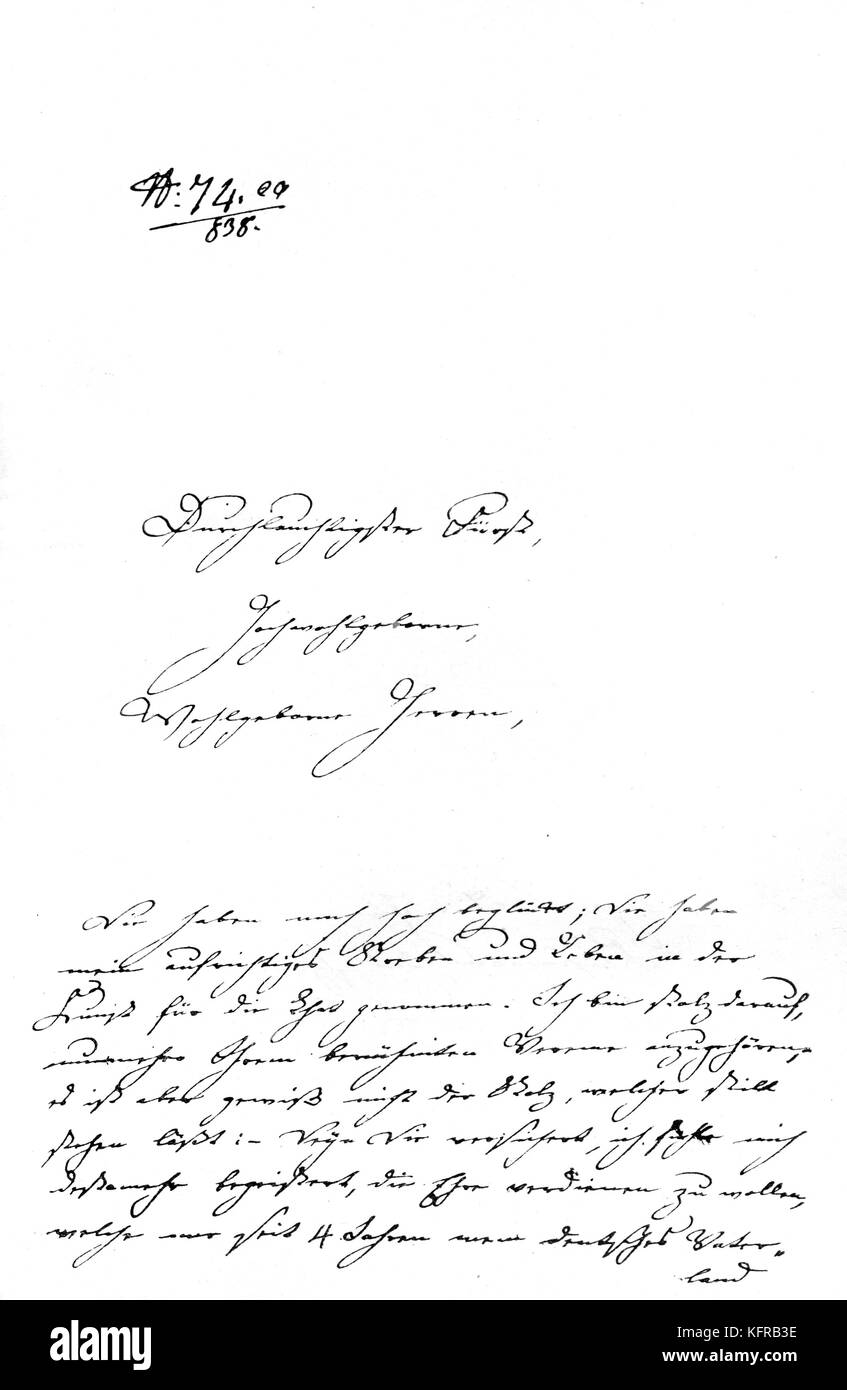 N: 74. ea
838.
Durchlauchtigster Fürst,
Hochwohlgeborne,
Wohlgeborne Herren,
Sie haben mich hoch beglückt; Sie haben
mein aufrichtiges Streben und Leben in der
Kunst für die That genommen. Ich bin stolz darauf,
nunmehr Ihrem berühmten Vereine anzugehören,
es ist aber gewiß nicht der Stolz, welcher still
stehen läßt: – Seyn Sie versichert, ich fühle mich
destomehr begeistert, die Ehre verdienen zu wollen,
welche mir seit 4 Jahren mein deutsches Vater„
land
alamy
Image ID: KFRB3E
www.alamy.com